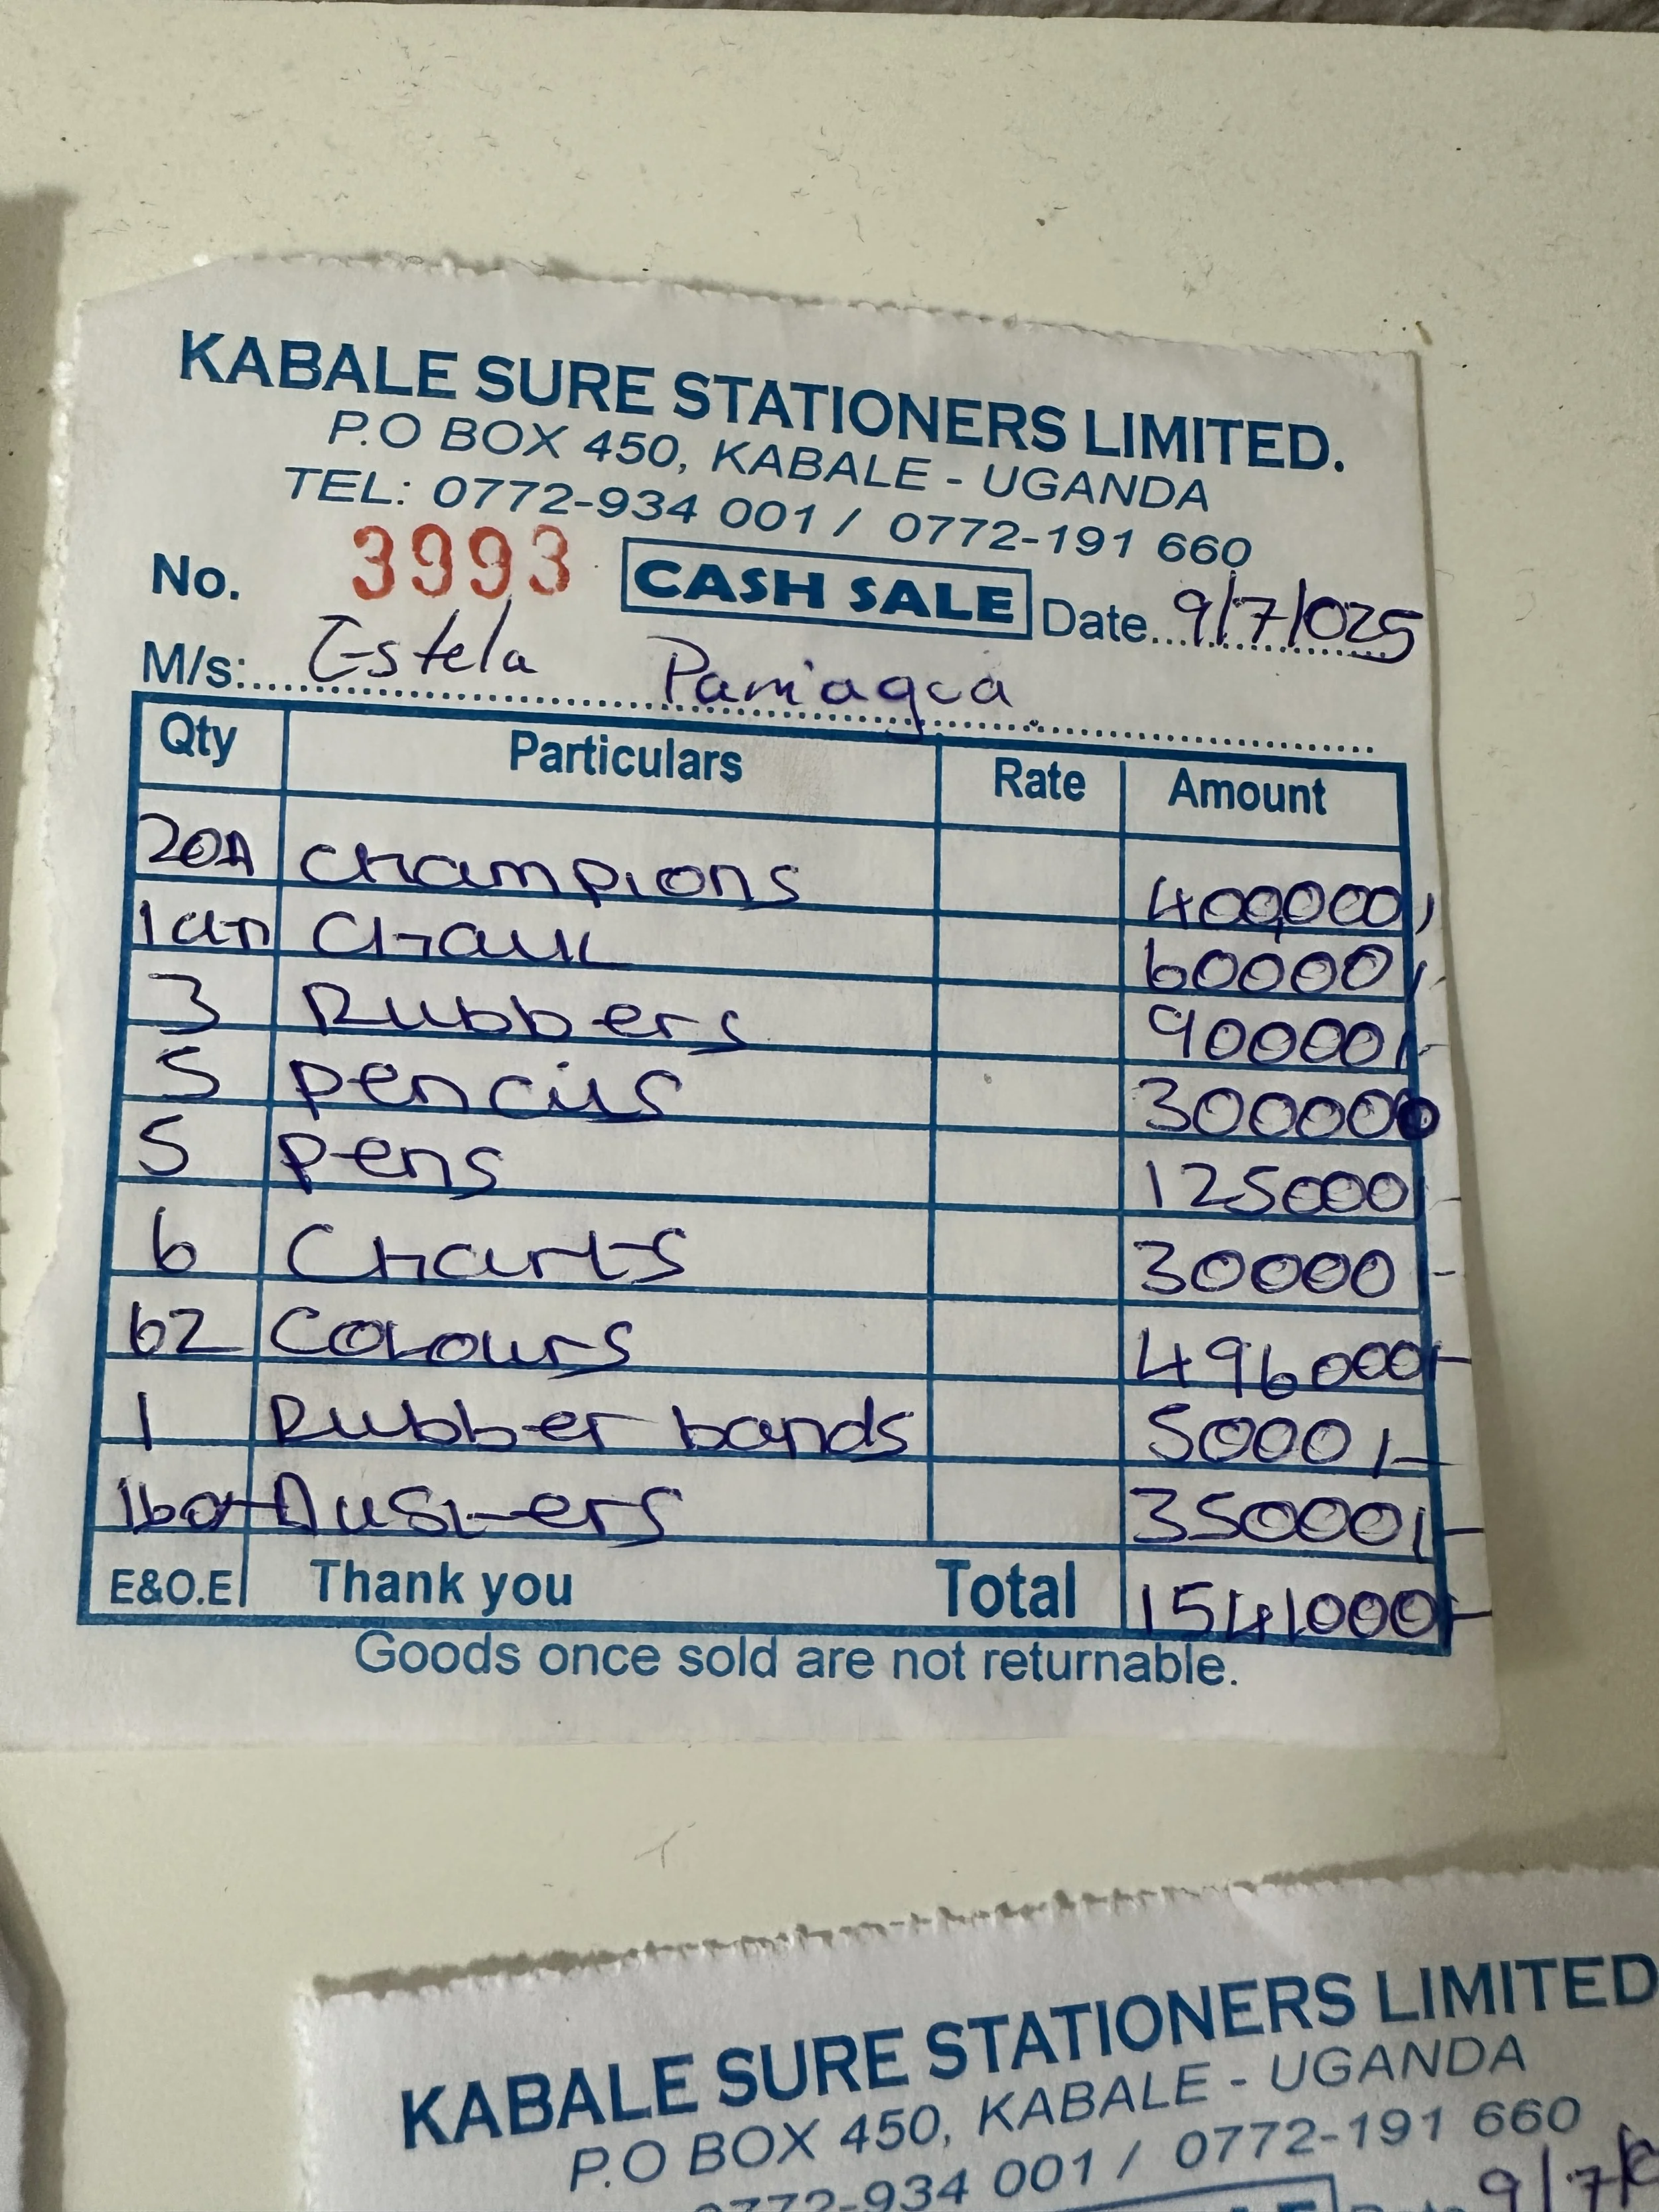 KABALE SURE STATIONERS LIMITED.
P.O BOX 450, KABALE - UGANDA
TEL: 0772-934 001 / 0772-191 660
No. 3993 CASH SALE Date 9/7/025
M/s: Estela Paniagua
Qty Particulars Rate Amount
Champions 400000/
1ctn Chalk 60000/-
3 Rubbers 90000/-
5 pencils 300000
5 pens 125000/-
6 Charts 30000 -
62 Colours 496000/-
1 Rubber bands 5000/-
1box Dusters 35000/-
E&O.E Thank you Total 1541000/-
Goods once sold are not returnable.
KABALE SURE STATIONERS LIMITED
P.O BOX 450, KABALE - UGANDA
0772-934 001 / 0772-191 660
9/7/